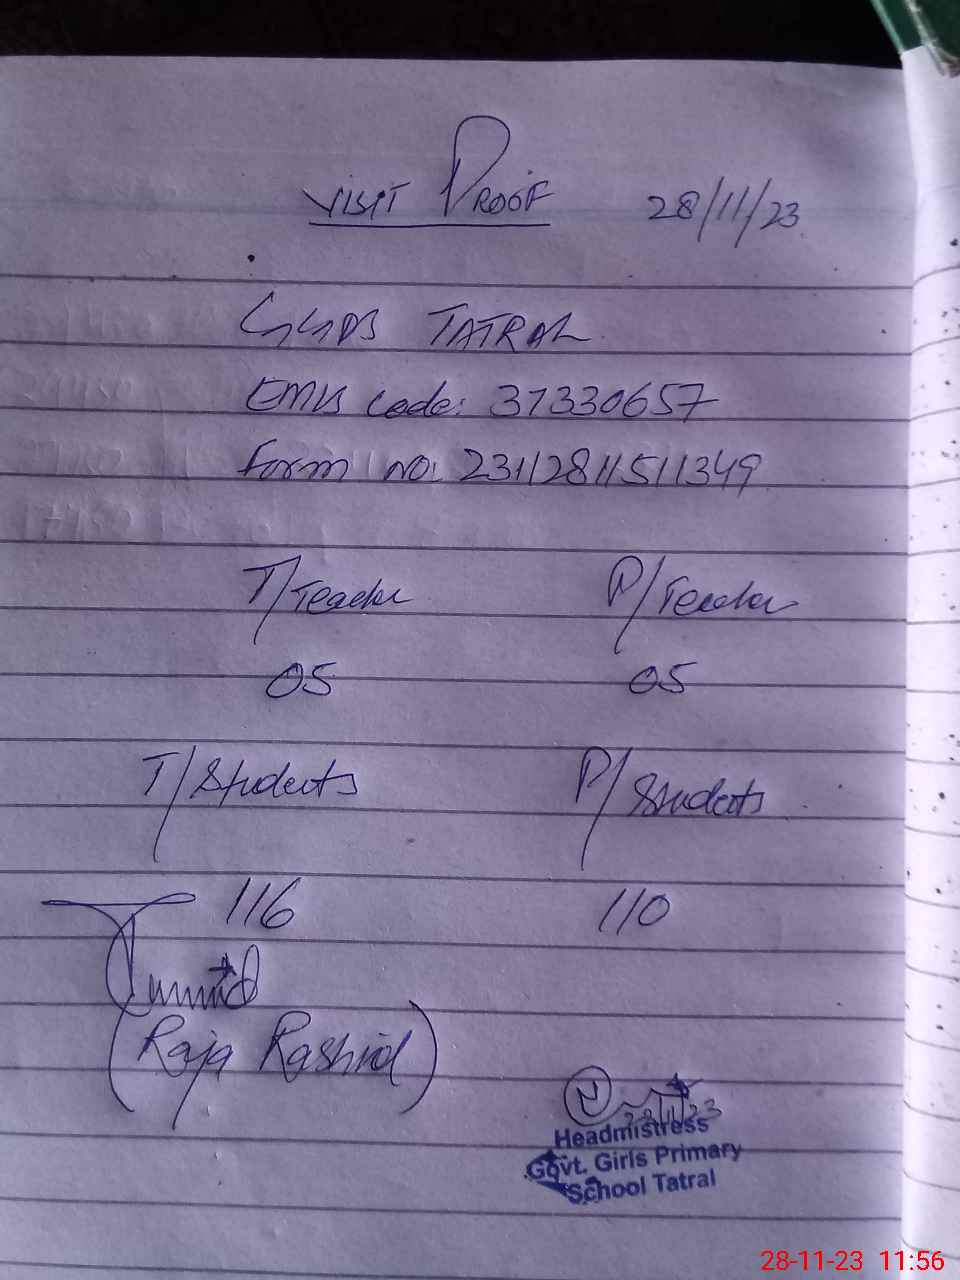 VISIT PROOF 28/11/23
GGPS TATRAL
EMIS Code: 37330657
Form no: 23112811511349
T/Teacher P/Teacher
05 05
T/Students P/Students
116 110
(Raja Rashid)
28/11/23
Headmistress
Govt. Girls Primary
School Tatral
28-11-23 11:56